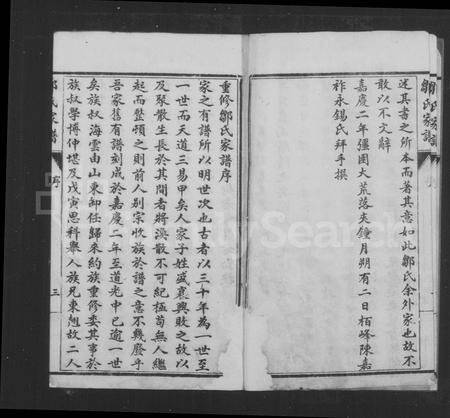 鄒氏家譜
序
述其書之所本而著其意如此鄒氏余外家也故不
敢以不文辭
嘉慶二年彊圉大荒落夾鐘月朔有二日栢峰陳嘉
祚永錫氏拜手撰
重修鄒氏家譜序
家之有譜所以明世次也古者以三十年為一世至
一世而天道三易甲矣人家子姓盛衰興敗之故以
及聚散生長於其間者將渙散不可紀極苟無人繼
起而整頓之則前人別宗收族於譜之意不幾廢乎
吾家舊有譜刻成於嘉慶二年至道光中已逾一世
矣族叔海雲由山東卸任歸來約族重修委其事於
族叔學博仲堪及戊寅恩科舉人族兄東魁故二人
鄒氏家譜
序
三